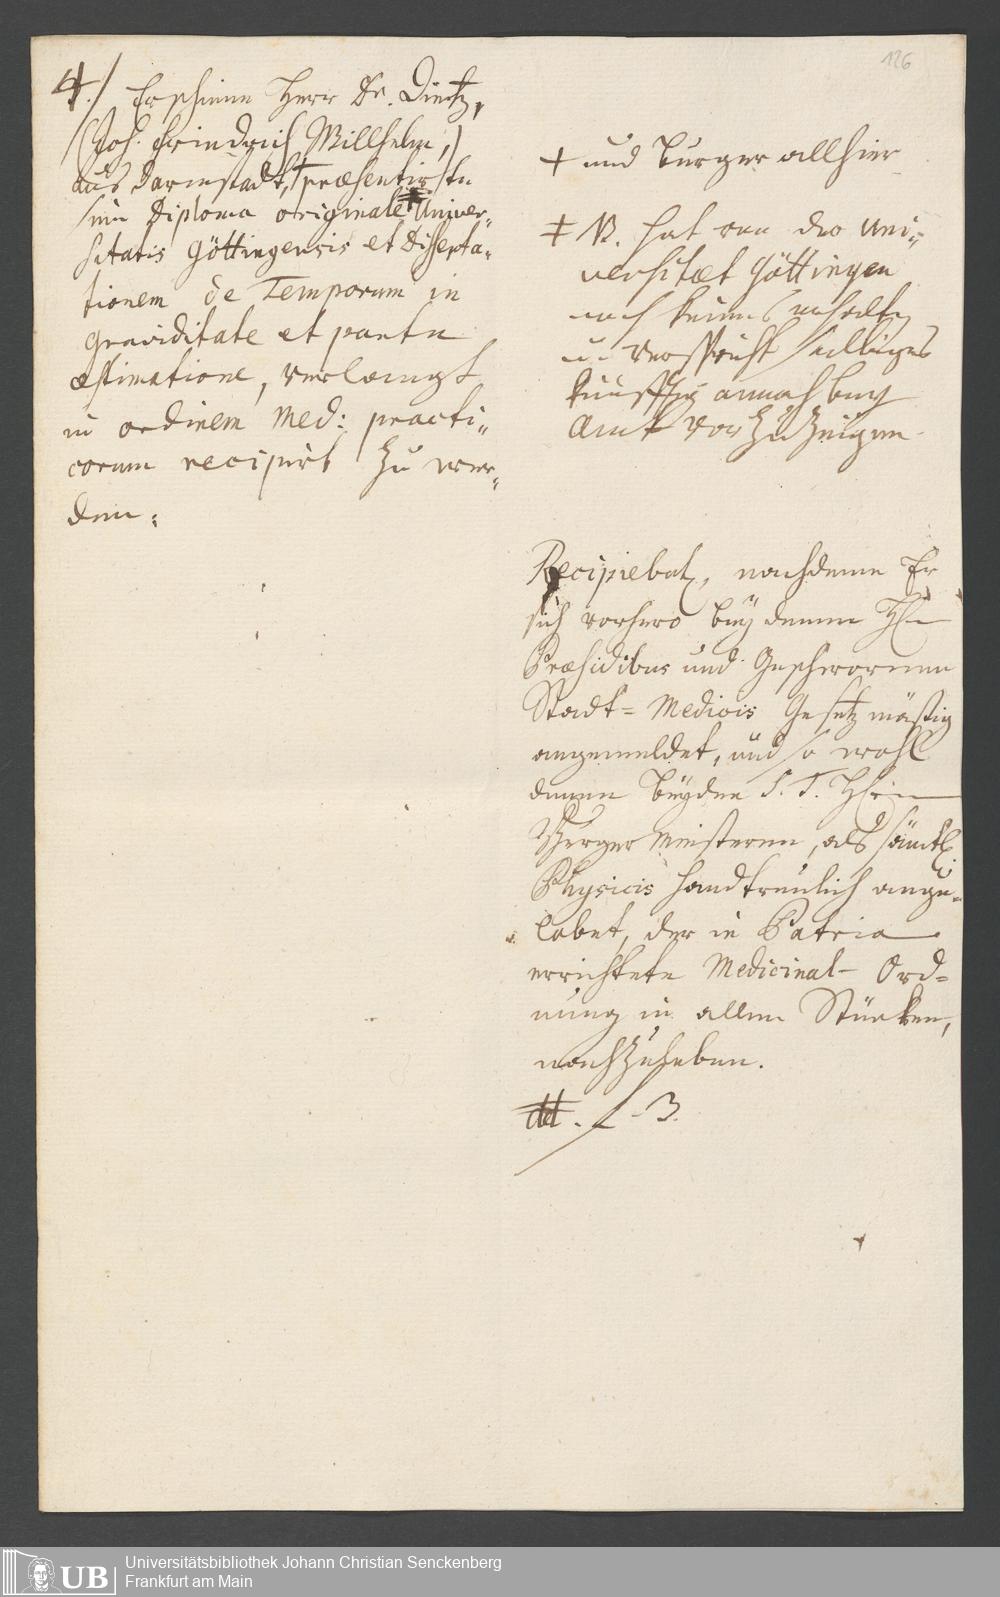 126
4./ Erschiene Herr Dr. Dietz,
(Joh. Friedrich Willhelm,)
aus Darmstadt, + præsentirte
sein Diploma originale ‡ Univer„
sitatis Göttingensis et Disserta„
tionem de Temporum in
graviditate et partu
æstimatione, verlangt
in ordinem Med: practi„
corum recipirt zu wer„
den.
+ und Burger allhier
‡ NB. hat von der Uni„
versitæt Göttingen
noch keines erhalten
u. verspricht selbiges
künfftig annoch beym
Amt vorzuzeigen.
Recipiebat, nachdeme Er
sich vorhero bey denen HH
Præsidibus und Geschwornen
Stadt= Medicis Gesetz mäßig
angemeldet, und so wohl
denen beyden S. T. HH
Burger Meisteren, als sämtl.
Physicis handtreulich ange„
lobet, der in Patria
errichtete Medicinal- Ord=
nung in allen Stücken,
nachzuleben.
Universitätsbibliothek Johann Christian Senckenberg
Frankfurt am Main
UB